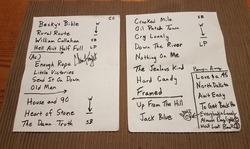 Becky's Bible CG
Rural Route
William Callahan SB
Hell Ain't Half Full LP
(Ac)
Enough Rope
Little Victories
Send It On Down
Old Man
House and 90
Heart of Stone
The Damn Truth SB
Crooked Mile
Oil Patch Town SB
Cry Lonely LP
Down The River
Nothing On Me
The Jealous Kind
Hard Candy
Framed
Up From The Hill
Jack Blue
Love to a 45
North Dakota
Ain't Easy
To Get Back
Everybody's Lonely